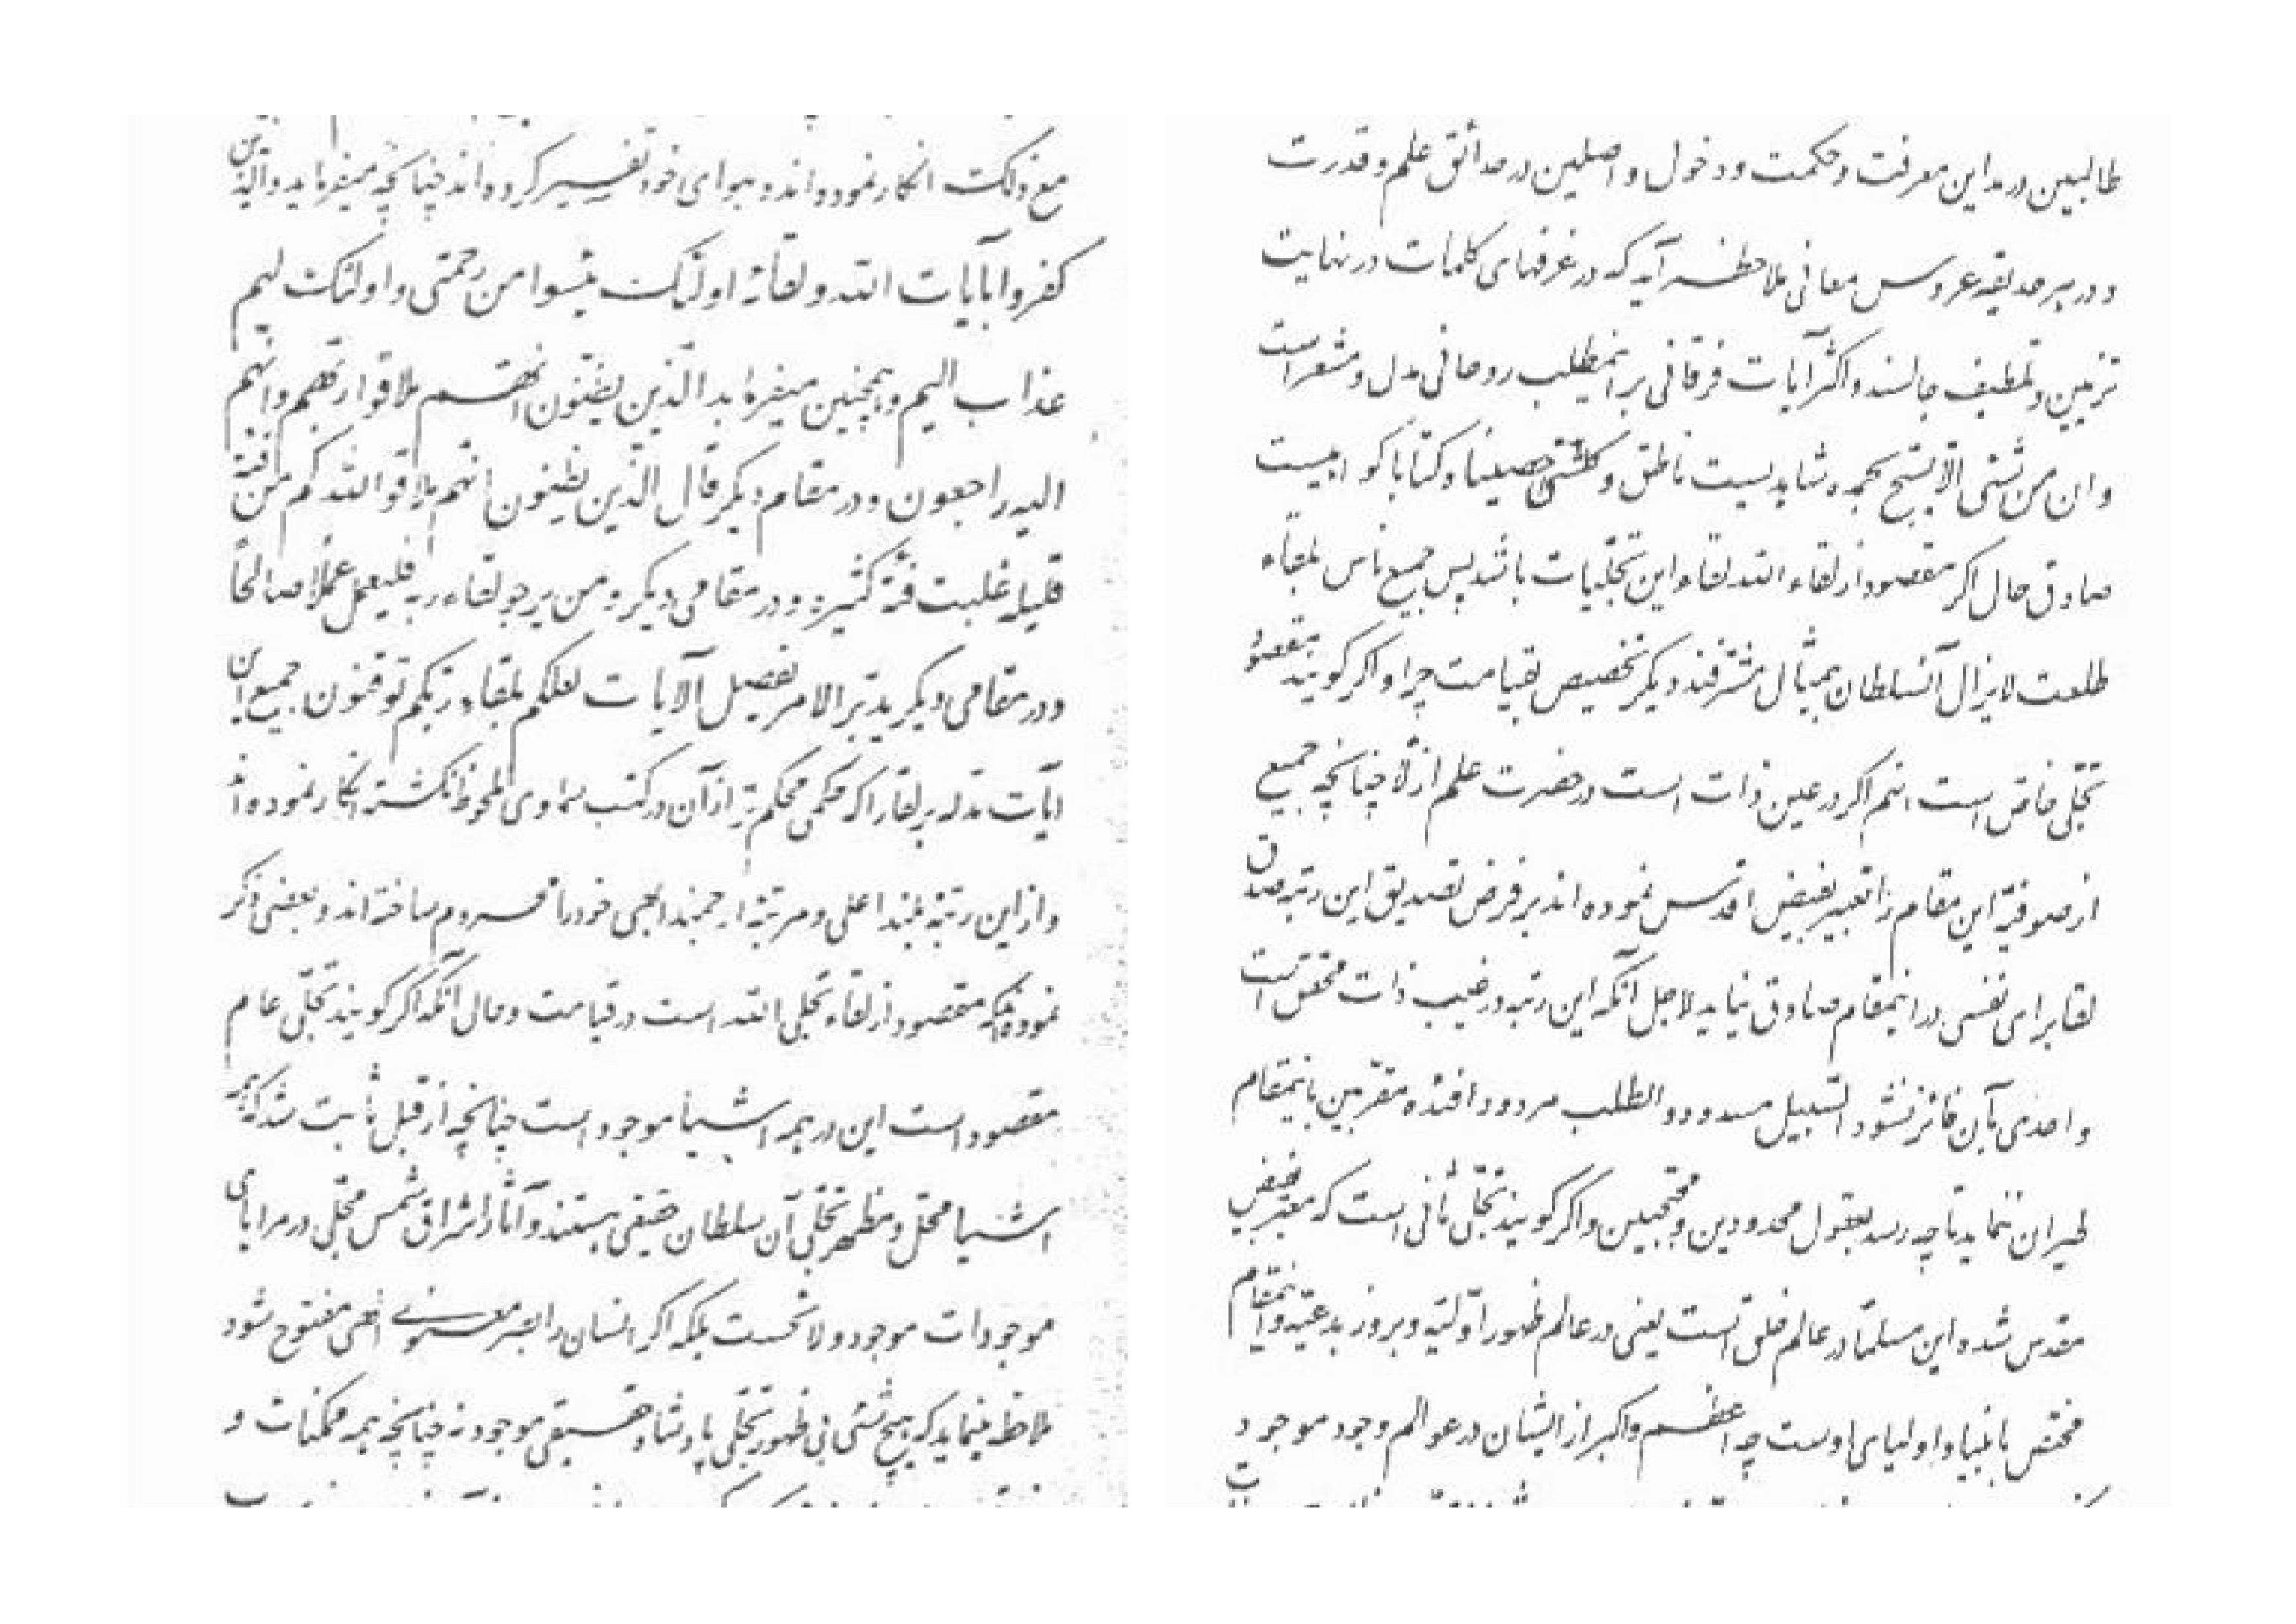 مع ذلک انکار نموده‌اند و بهوای خود تفسیر کرده‌اند چنانچه میفرماید والّذین
کفروا بآیات اللّه ولقائه اولئک یئسوا من رحمتی و اولئک لهم
عذاب الیم و همچنین میفرماید الّذین یظنّون انّهم ملاقوا ربّهم و انّهم
الیه راجعون و در مقام دیگر قال الّذین یظنّون انّهم ملاقوا اللّه کم من فئة
قلیله غلبت فئة کثیره و در مقامی دیگر و من یرجو لقاء ربه فلیعمل عملاً صالحاً
و در مقامی دیگر یدبّر الامر یفصّل الآیات لعلّکم بلقاء ربّکم توقنون جمیع این
آیات مدلّه بر لقا را که حکمی محکم‌تر از آن در کتب سماوی ملحوظ نگشته انکار نموده‌اند
و از این رتبهٔ بلند اعلی و مرتبهٔ ارجمند ابهی خود را محروم ساخته‌اند و بعضی ذکر
نموده‌اند که مقصود از لقاء تجلّی اللّه است در قیامت و حال آنکه اگر گویند تجلّی عام
مقصود است این در همه اشیا موجود است چنانچه از قبل ثابت شد که همه
اشیا محلّ و مظهر تجلّی آن سلطان حقیقی هستند و آثار اشراق شمس مجلّی در مرایای
موجودات موجود و لائح است بلکه اگر انسان را بصر معنوی الهی مفتوح شود
ملاحظه مینماید که هیچ شئی بی ظهور تجلّی پادشاه حقیقی موجود نه چنانچه همه ممکنات و
طالبین در مداین معرفت و حکمت و دخول واصلین در حدائق علم و قدرت
و در هر حدیقه عروس معانی ملاحظه آید که در غرفهای کلمات در نهایت
تزیین و تلطیف جالسند و اکثر آیات فرقانی بر اینمطلب روحانی مدل و مشعر است
و ان من شئی الّا یسبّح بحمده شاهدیست ناطق و کلّ شئی احصیناه کتاباً گواهیست
صادق حال اگر مقصود از لقاء اللّه لقاء این تجلّیات باشد پس جمیع ناس بلقاء
طلعت لایزال آنسلطان بیمثال مشرّفند دیگر تخصیص بقیامت چرا و اگر گویند مقصود
تجلّی خاصّ است انهم اگر در عین ذات است در حضرت علم ازلاً چنانچه جمعی
از صوفیّه این مقام را تعبیر بفیض اقدس نموده‌اند بر فرض تصدیق این رتبه صدق
لقا برای نفسی در اینمقام صادق نیاید لاجل آنکه این رتبه در غیب ذات محقّق است
و احدی بآن فائز نشود السّبیل مسدود و الطلب مردود افئدهٔ مقرّبین باینمقام
طیران ننماید تا چه رسد بعقول محدودین و محتجبین و اگر گویند تجلّی ثانی است که معبّر بفیض
مقدس شده این مسلّماً در عالم خلق است یعنی در عالم ظهور اوّلیّه و بروز بدعیّه و اینمقام
مختصّ بانبیا و اولیای اوست چه اعظم و اکبر از ایشان در عوالم وجود موجود